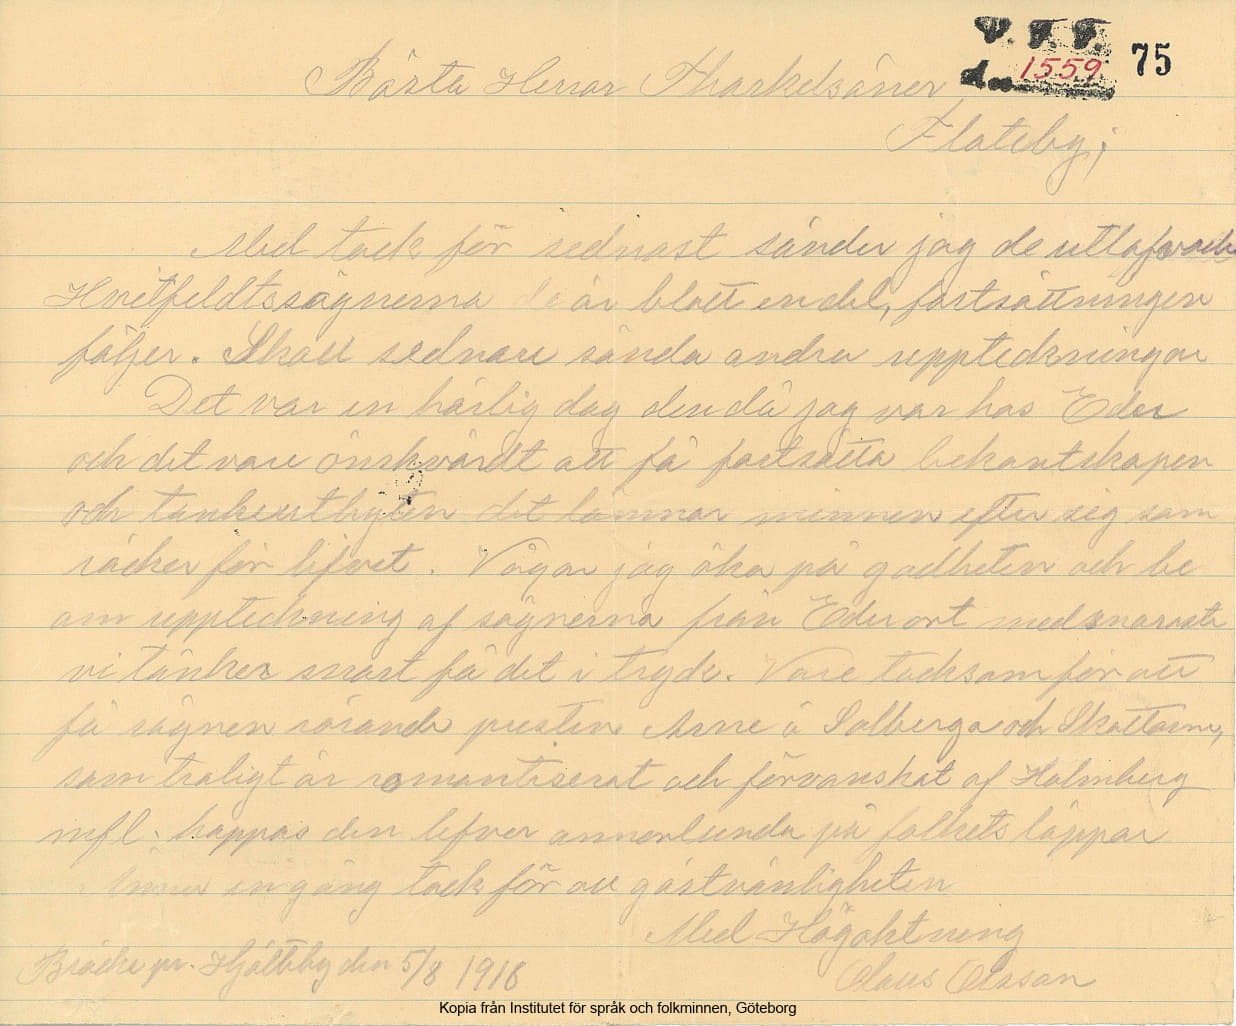 V. F. F.
d. 1559 75
Bästa Herrar Thorkelsöner
Flateby;
Med tack för sednast sänder jag de utlofvade
Hvitfeldtssägnerna de är blott en del, fortsättningen
följer. Skall sednare sända andra uppteckningar
Det var en härlig dag den då jag var hos Eder
och det vore önskvärdt att få fortsätta bekantskapen
och tankeutbyten det lämnar minnen efter sig som
räcker för lifvet. Vågar jag öka på godheten och be
om uppteckning af sägnerna från Eder ort med snaraste
vi tänker snart få det i tryck. Vore tacksam för att
få sägnen rörande presten Arne i Solberga och Skottarne,
som troligt är romantiserat och förvanskat af Holmberg
mfl. hoppas den lefver annorlunda på folkets läppar
Ännu en gång tack för all gästvänligheten
Med Högaktning
Bräcke pr. Hjälteby den 5/8 1918 Olaus Olsson
Kopia från Institutet för språk och folkminnen, Göteborg